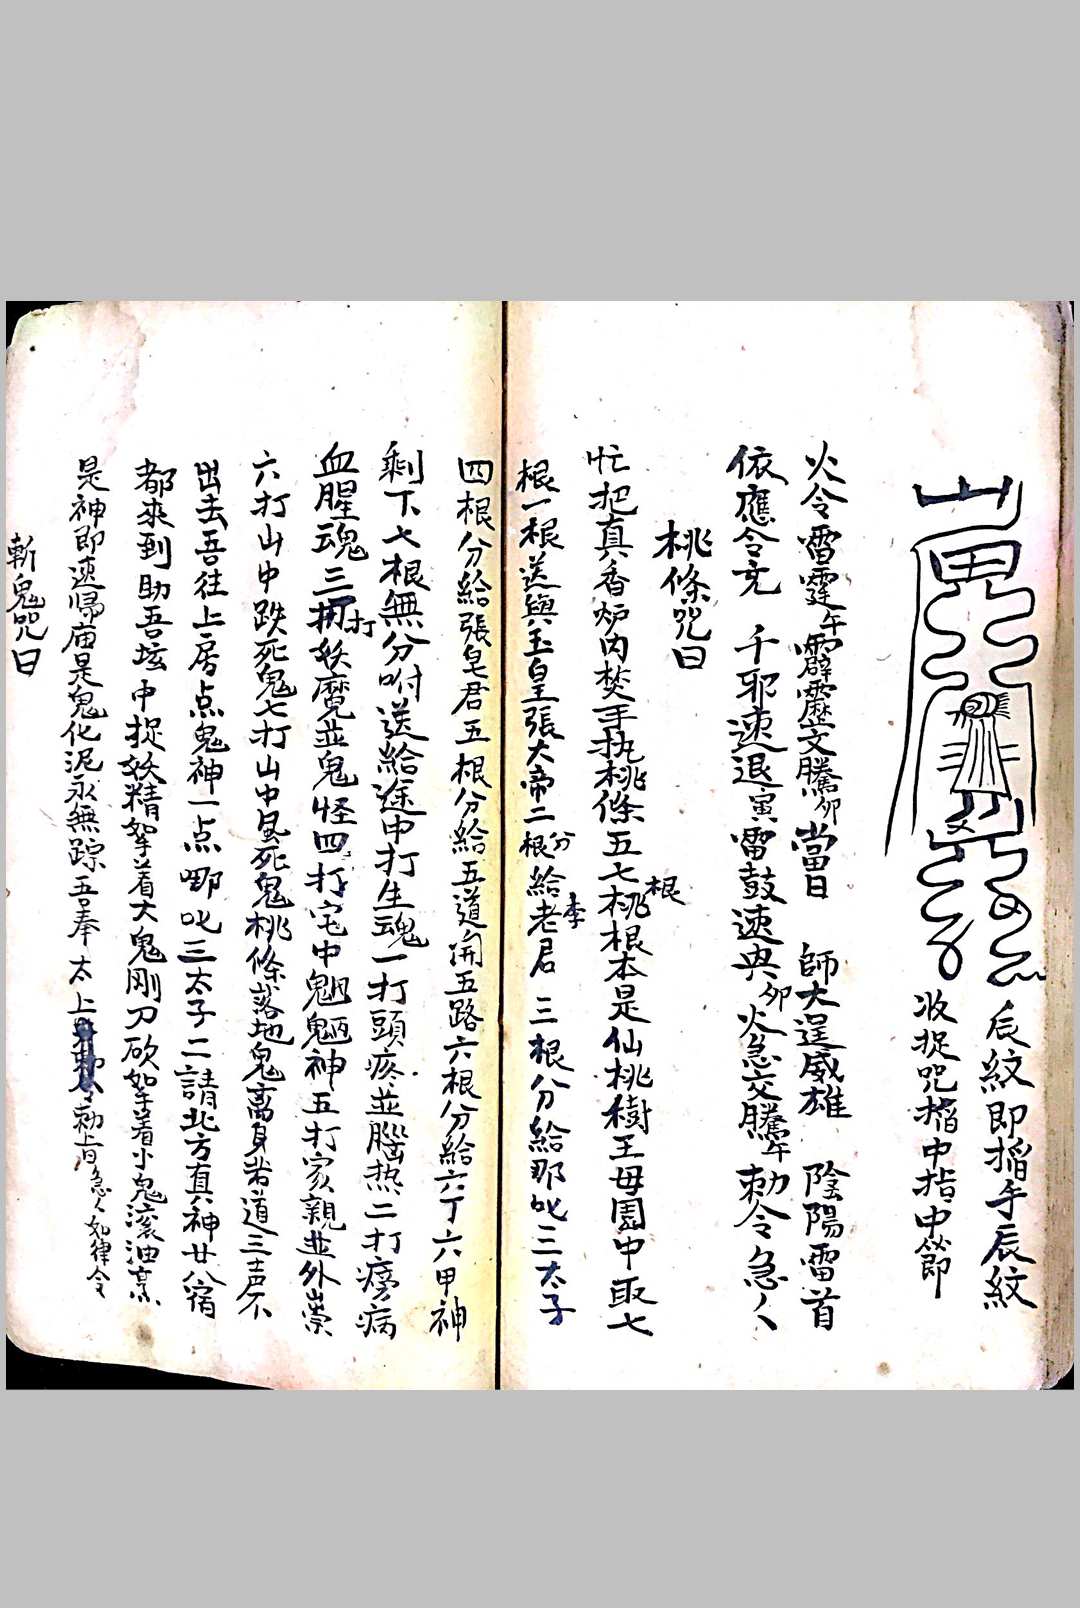 辰紋即掐手辰紋
收捉咒掐中指中節
火令雷霆午霹靂文騰卯當日 師大逞威雄 陰陽雷首
依應令克 千邪速退寅雷鼓速典卯火急交騰午勅令急々
桃條咒曰
忙把真香炉内焚手执桃條五七根桃根本是仙桃樹王母園中取七
根一根送與玉皇張大帝二根分給老李君三根分給那叱三太子
四根分給張皂君五根分給五道開五路六根分給六丁六甲神
剩下七根無分咐送給途中打生魂一打頭疼並腦热二打痨病
血腥魂三打妖魔並鬼怪四打宅中魍魎神五打家親並外崇
六打山中跌死鬼七打山中屈死鬼桃條落地鬼离身若道三声不
出去吾往上房点鬼神一点哪叱三太子二請北方真神廿八宿
都來到助吾坛中捉妖精拏着大鬼刚刀砍拏着小鬼滚油烹
是神即速归庙是鬼化泥永無踪吾奉太上勅令急々如律令
斬鬼咒曰